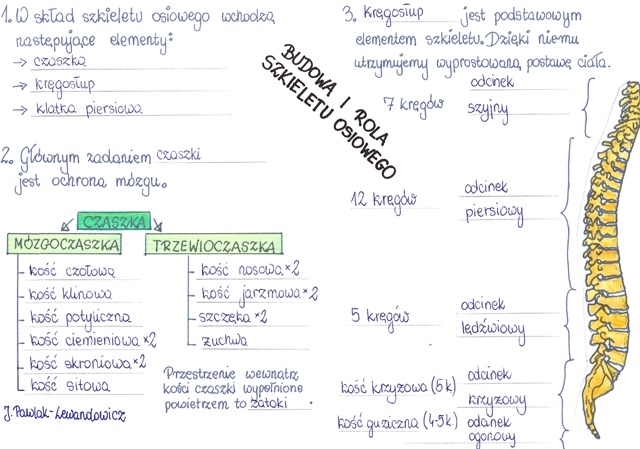 1. W skład szkieletu osiowego wchodzą
następujące elementy:
→ czaszka
→ kręgosłup
→ klatka piersiowa
2. Głównym zadaniem czaszki
jest ochrona mózgu.
CZASZKA
MÓZGOCZASZKA
kość czołowa
kość klinowa
kość potyliczna
kość ciemieniowa x2
kość skroniowa x2
kość sitowa
TRZEWIOCZASZKA
kość nosowa x2
kość jarzmowa x2
szczęka x2
żuchwa
Przestrzenie wewnątrz
kości czaszki wypełnione
powietrzem to zatoki.
J. Pawlak-Lewandowicz
BUDOWA I ROLA
SZKIELETU OSIOWEGO
3. Kręgosłup jest podstawowym
elementem szkieletu. Dzięki niemu
utrzymujemy wyprostowaną postawę ciała.
7 kręgów odcinek
szyjny
12 kręgów odcinek
piersiowy
5 kręgów odcinek
lędźwiowy
kość krzyżowa (5k) odcinek
krzyżowy
kość guziczna (4-5k) odcinek
ogonowy